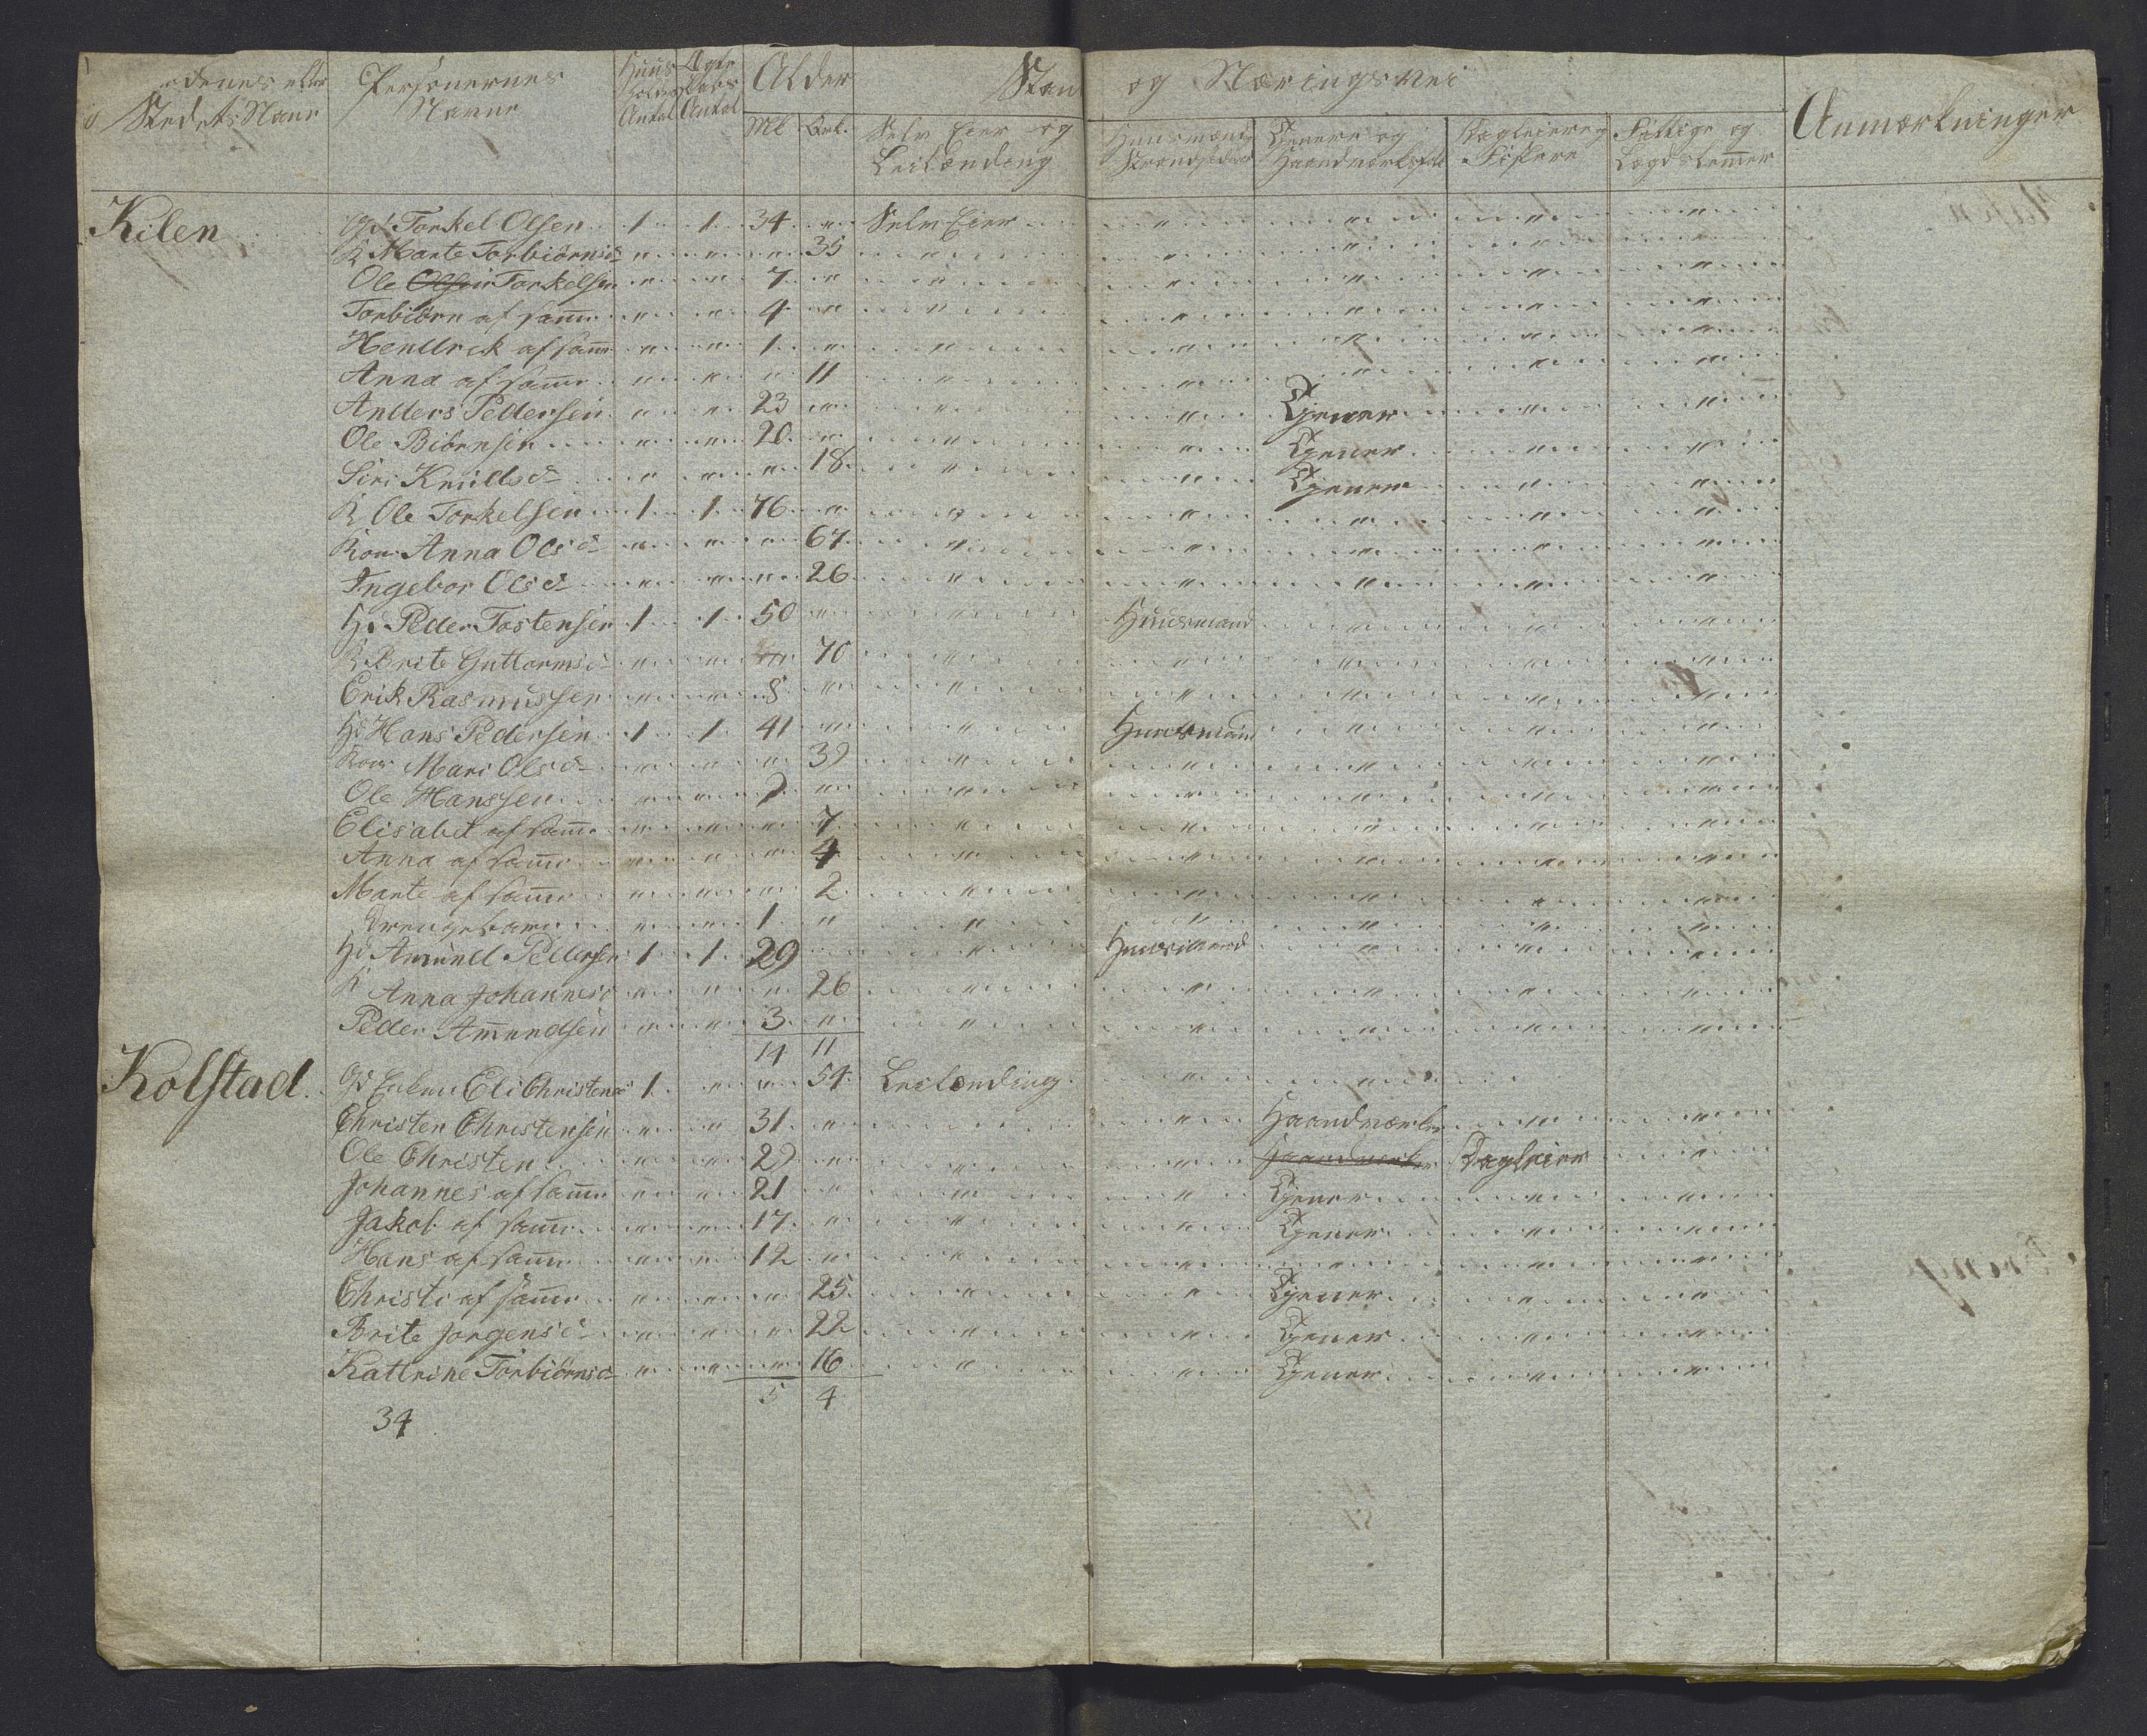 Stedets Navn | Personernes Navne | Huus holdn Antal | Ægte Pars Antal | Alder Mk Qvk. | Stand og Næringsvei | Anmærkninger
Selv Eier og Leilænding | Huusmænd Strandsidder | Tjenere og Haandværksfolk | Dagleiere og Fiskere | Fattige og Lægdslemmer
Kilen Gd Torkel Olsen 1 1 34 " Selv Eier
K Marte Torbiörnsd " " " 35
Ole Olsen Torkelsen " " 7 "
Torbiörn af samme " " 4 "
Hendrick af samme " " 1 "
Anna af samme " " " 11
Anders Pedersen " " 23 " Tjener
Ole Biörnsen " " 20 " Tjener
Siri Knudsd " " " 18 Tjener
K Ole Torkelsen 1 1 76 "
Kone Anna Olsd " " " 67
Ingebor Olsd " " " 26
Hd Peder Tostensen 1 1 50 " Huusmand
K Brite Guttormsd " " " 70
Erik Rasmussen " " 8 "
Hd Hans Pedersen 1 1 41 " Huusmand
Kone Mari Olsd " " " 39
Ole Hanssen " " 9 "
Elisabet af samme " " " 7
Anna af samme " " " 4
Marte af samme " " " 2
Drengebarn " " 1 "
Hd Amund Pedersen 1 1 29 Huusmand
K Anna Johannesd " " " 26
Peder Amundsen " " 3 "
14 11
Kolstad Gd Enken Eli Christensd 1 " " 54 Leilænding
Christen Christensen " " 31 " Haandværker
Ole Christen " " 29 " Haandværker Dagleier
Johannes af samme " " 21 " Tjener
Jakob af samme " " 17 " Tjener
Hans af samme " " 12 "
Christi af samme " " " 25 Tjener
Brite Jorgensd " " " 22 Tjener
Kattrine Torbiörnsd " " " 16 Tjener
5 4
34